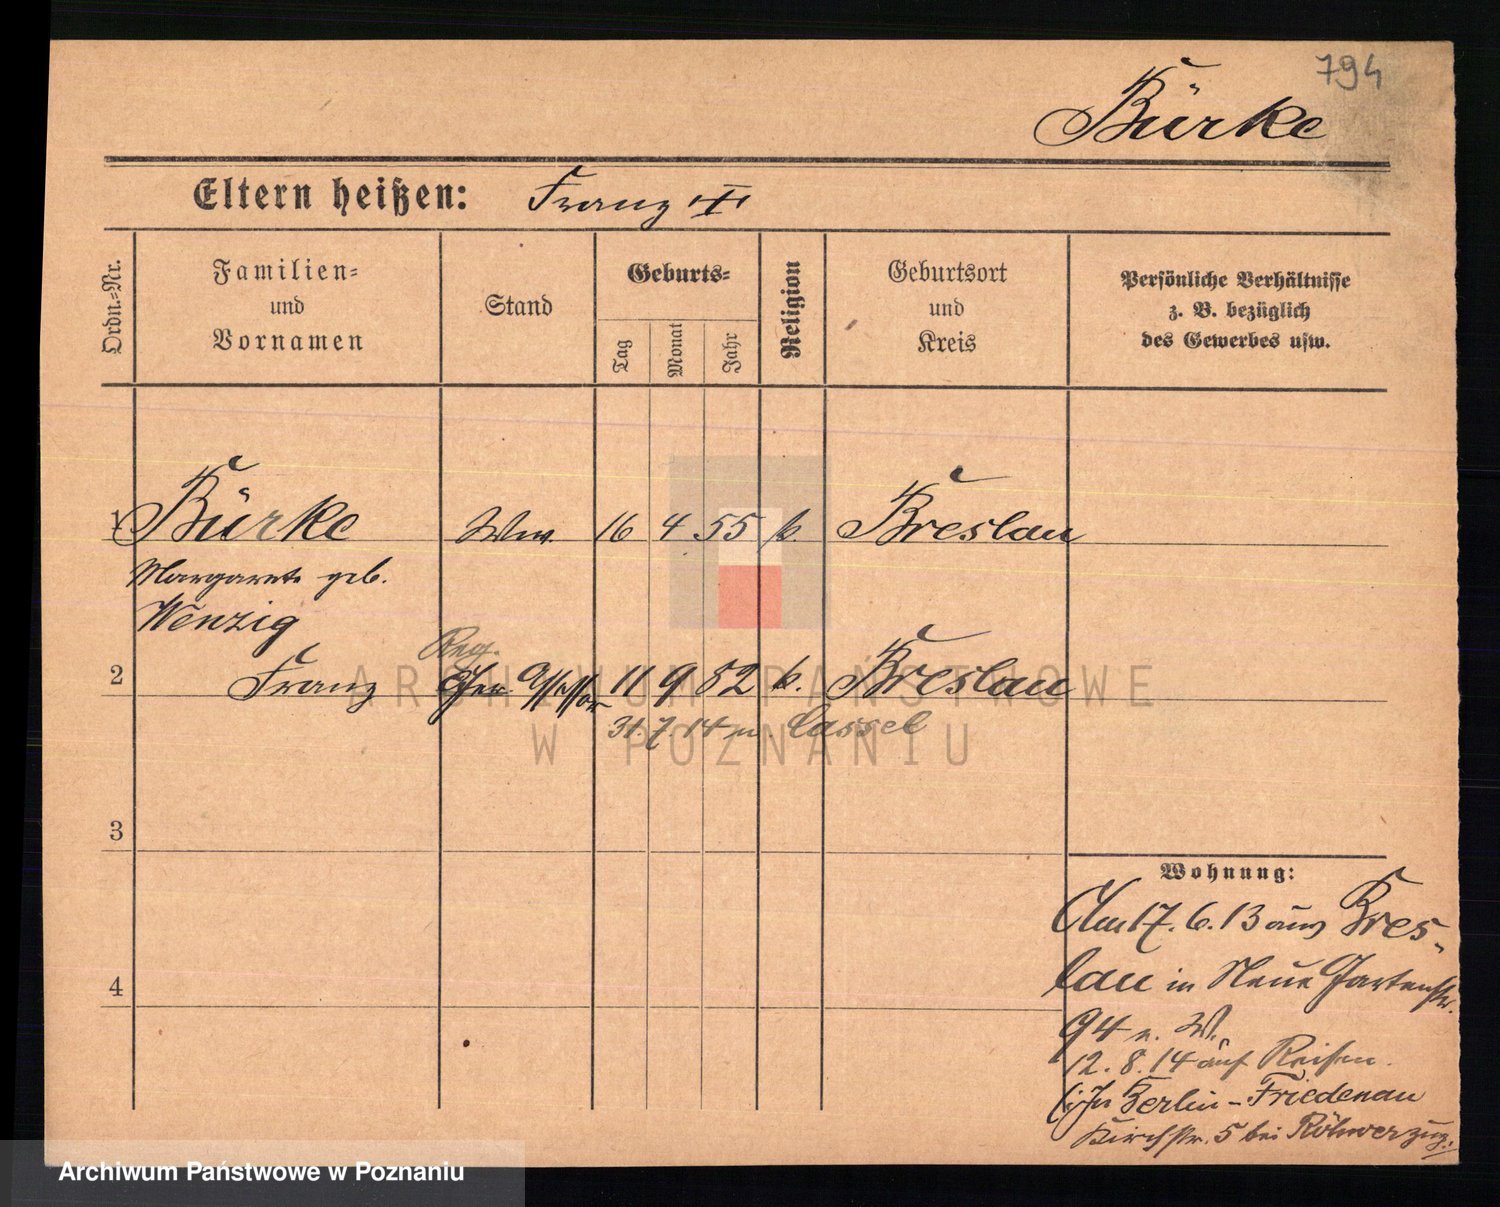 794
Bürke
Eltern heißen: Franz †
Ordn.=Nr.
Familien=
und
Vornamen
Stand
Geburts=
Tag
Monat
Jahr
Religion
Geburtsort
und
Kreis
Persönliche Verhältnisse
z. B. bezüglich
des Gewerbes usw.
1 Bürke Ww. 16 4 55 k. Breslau
Margarete geb.
Wenzig
Reg.
2 Franz Assessor 11 9 82 k. Breslau
31. 7. 14 n. Cassel
ARCHIWUM PAŃSTWOWE
W POZNANIU
3
4
Wohnung:
Am 17. 6. 13 aus Bres-
lau in Neue Gartenstr.
94 n. W.
12. 8. 14 auf Reisen.
in Berlin-Friedenau
Kirchstr. 5 bei zug.
Archiwum Państwowe w Poznaniu